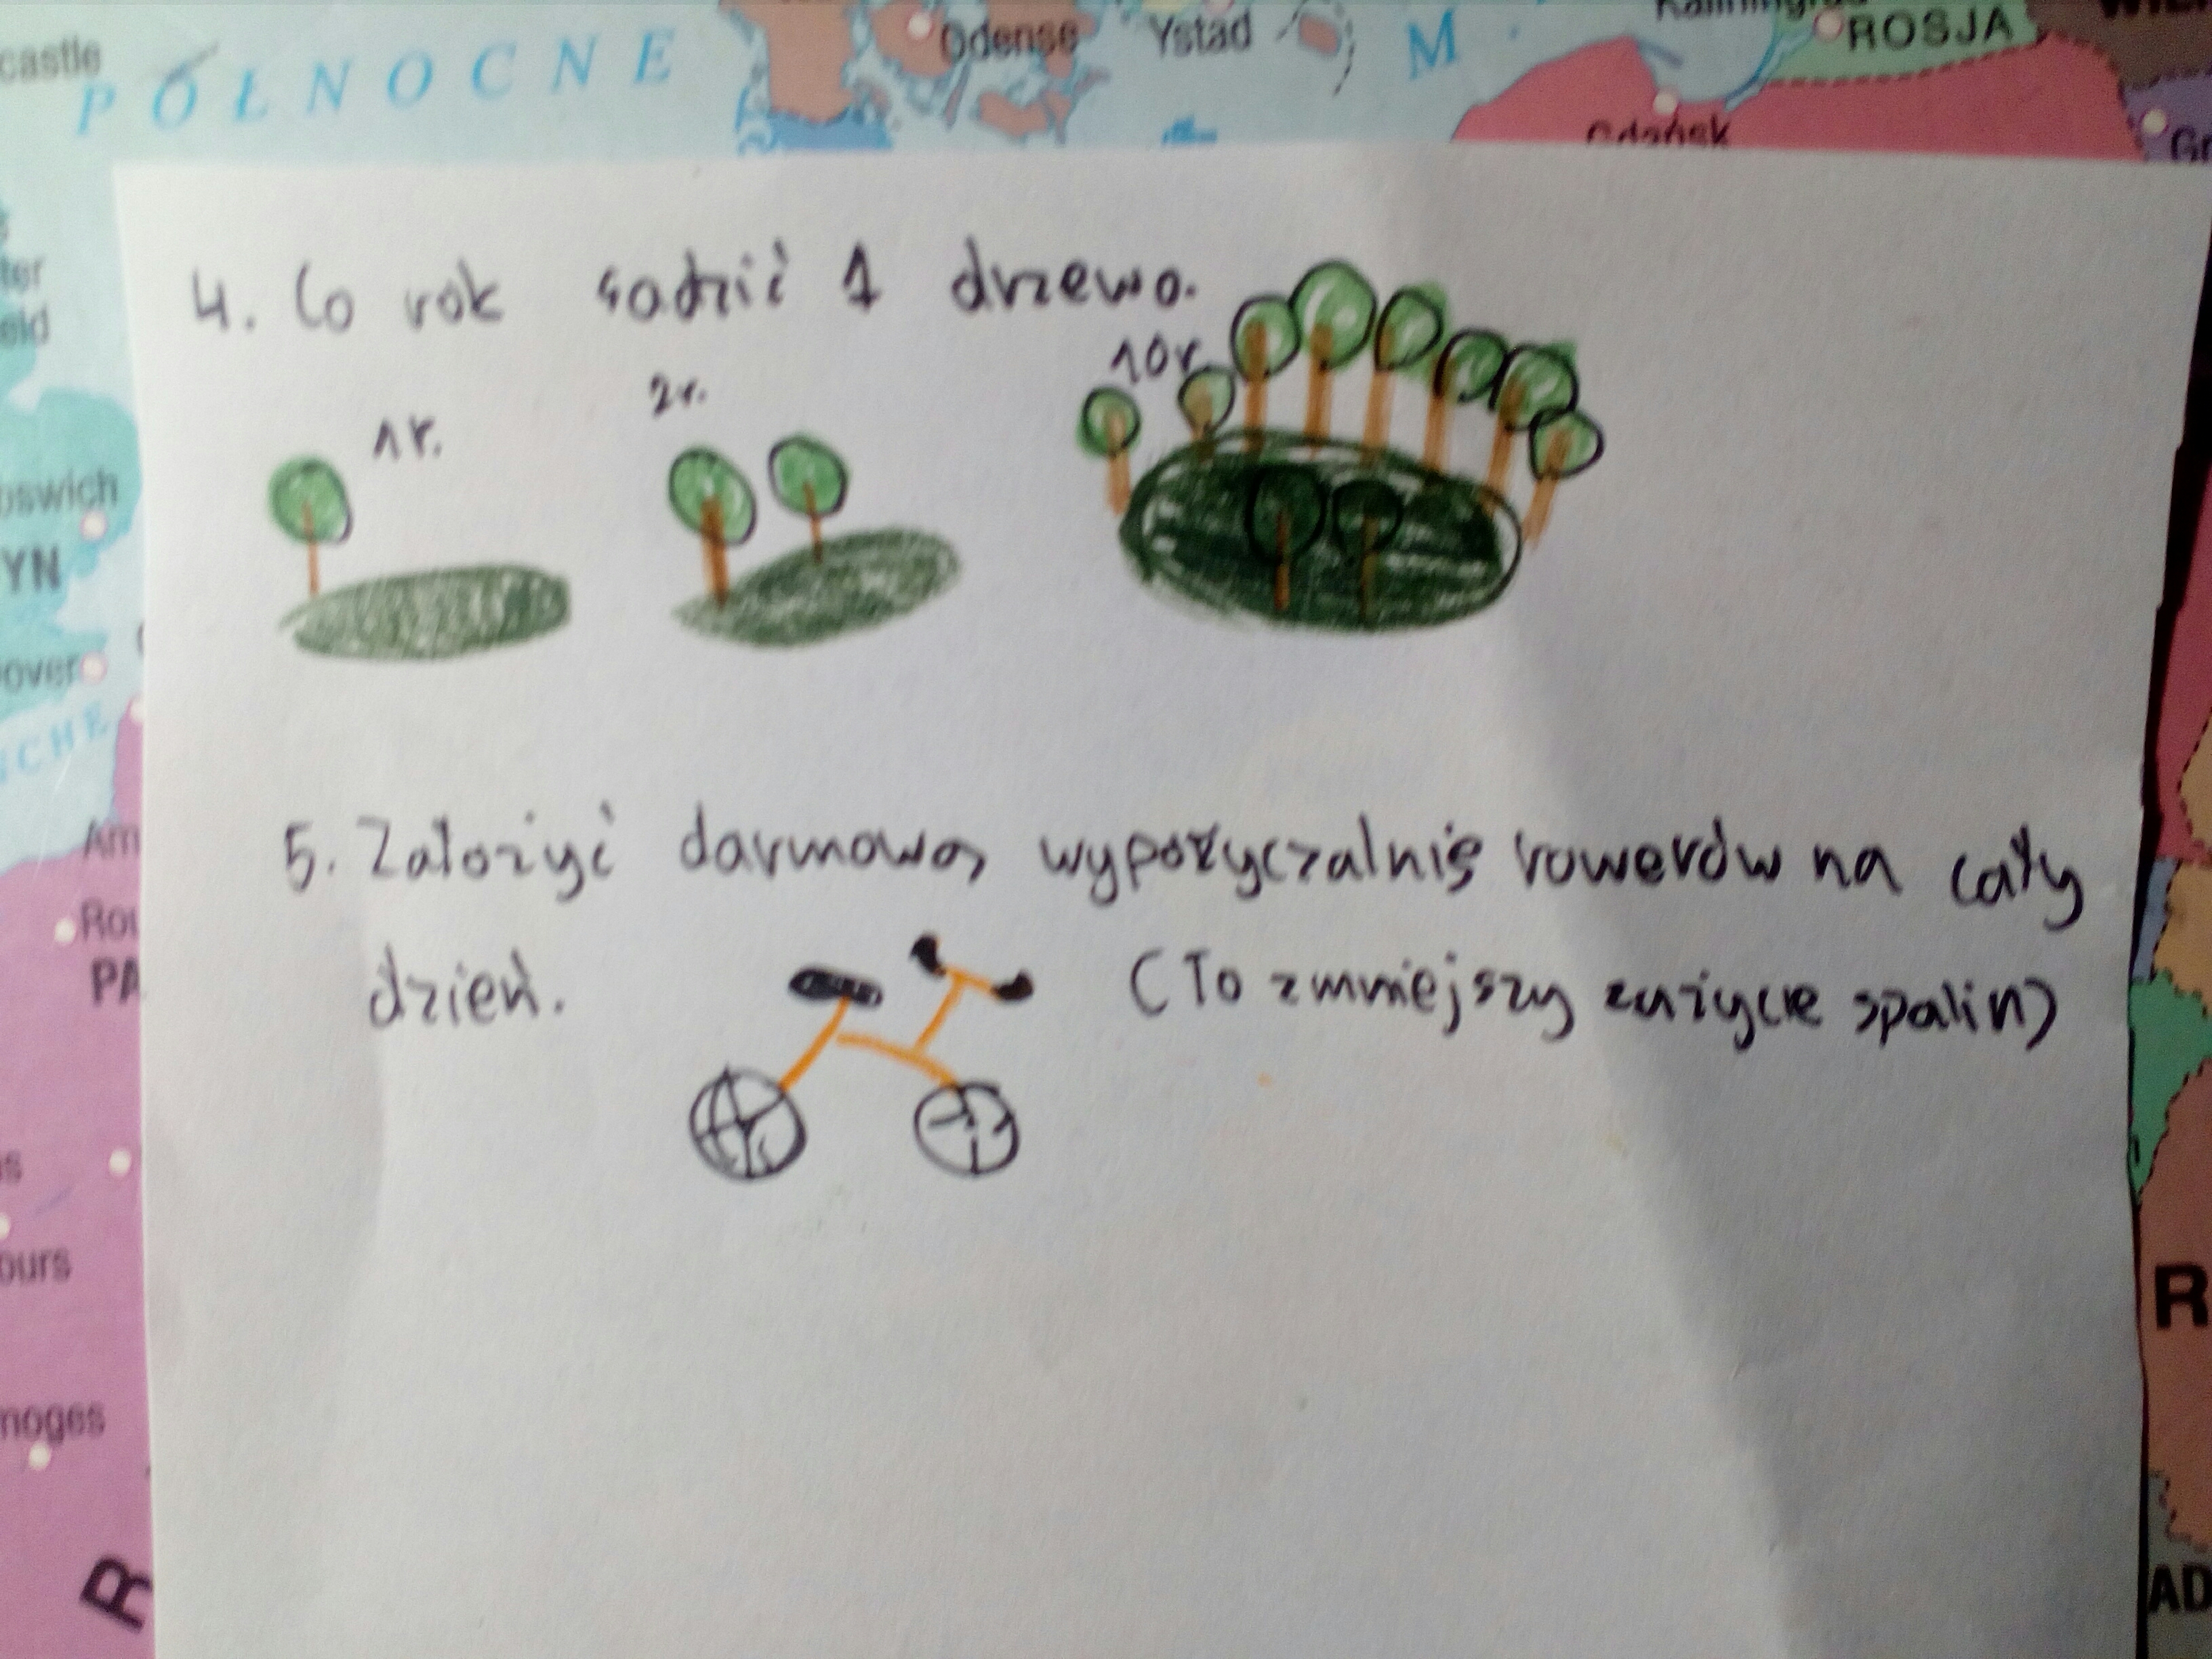 castle
PÓŁNOCNE
Odense
Ystad
M.
ROSJA
Gdańsk
Gr
ter
eld
4. Co rok sadzić 1 drzewo.
1r.
2r.
10r.
pswich
YN
over
SCHE
5. Założyć darmową wypożyczalnię rowerów na cały
dzień.
(To zmniejszy zużycie spalin)
Am
Rou
PA
s
ours
R
moges
R
AD